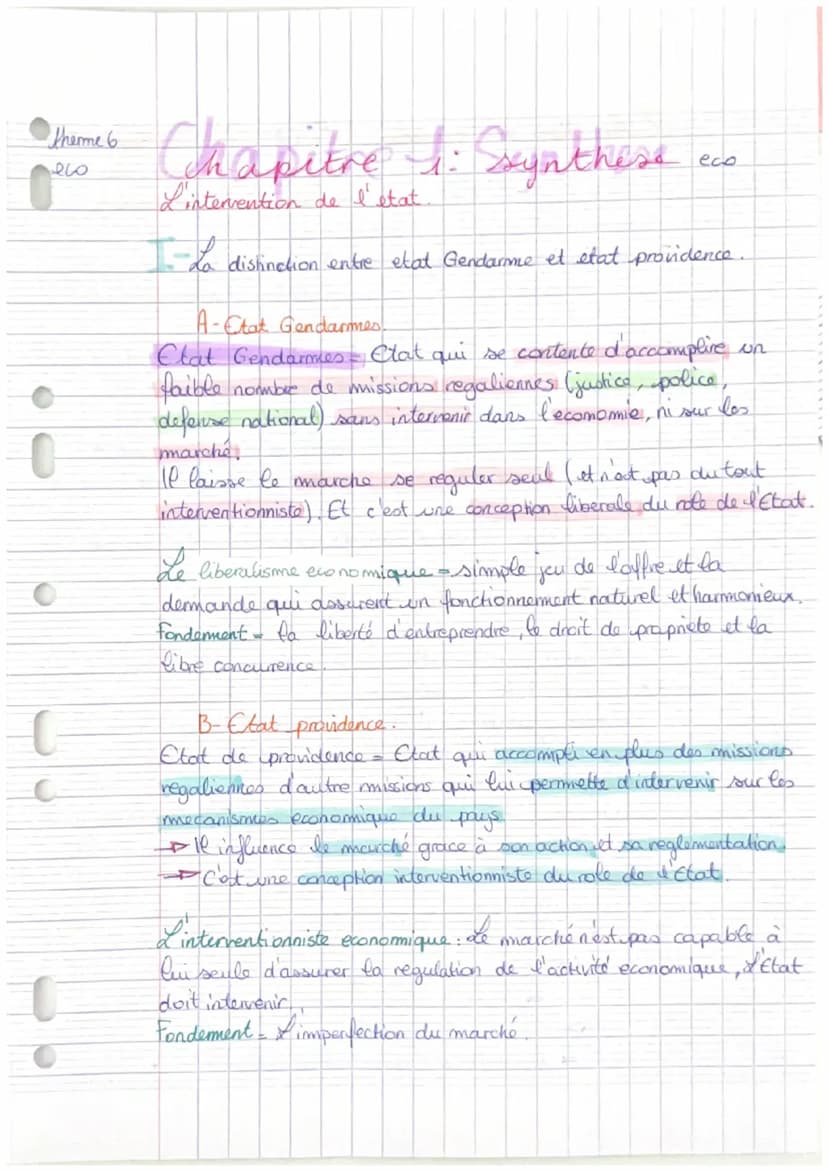 theme 6
eco
Chapitre 1: Synthese eco
L'intervention de l'etat.
I- La distinction entre etat Gendarme et etat providence.
A- Etat Gendarmes.
Etat Gendarmes = Etat qui se contente d'accomplire un
faible nombre de missions regaliennes (justice, police,
defense national) sans intervenir dans l'economie, ni sur les
marché.
Il laisse le marche se reguler seul (et n'est pas du tout
interventionniste). Et c'est une conception liberale du role de l'Etat.
Le liberalisme economique = simple jeu de l'offre et la
demande qui assurent un fonctionnement naturel et harmonieux.
Fondement = la liberté d'entreprendre, le droit de propriete et la
libre concurrence.
B- Etat providence.
Etat de providence = Etat qui accompli en plus des missions
regaliennes d'autre missions qui lui permette d'intervenir sur les
mecanismes economique du pays.
→ Il influence le marché grace à son action et sa reglementation.
→ C'est une conception interventionniste du role de l'Etat.
L'interventionniste economique : Le marché n'est pas capable à
lui seule d'assurer la regulation de l'activité economique, l'Etat
doit intervenir.
Fondement = L'imperfection du marché.